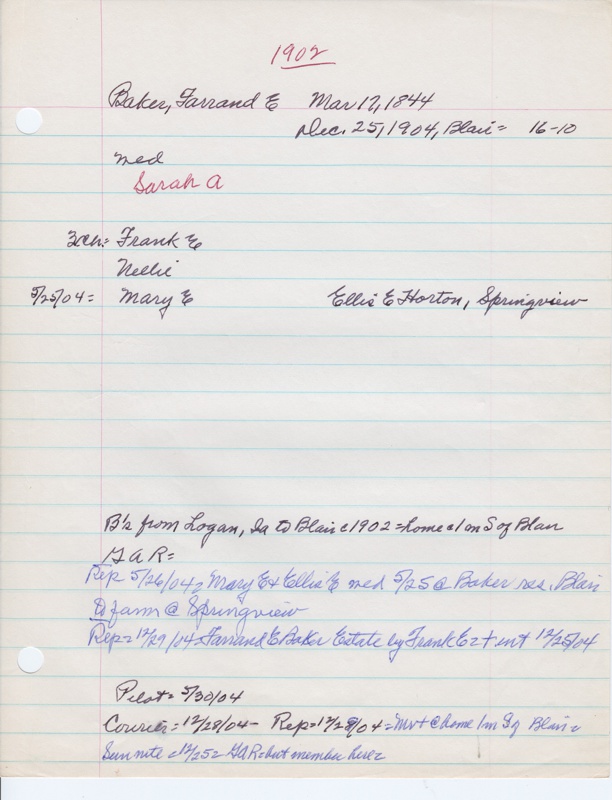 1902
Baker, Farrand E Mar 17, 1844
Dec. 25, 1904, Blair = 16-10
med
Sarah A
3ch: Frank E
Nellie
5/25/04 = Mary E Ellis E Horton, Springview
B's from Logan, Ia to Blair c1902 = home c1m S of Blair
G A R =
Rep 5/26/04 = Mary E & Ellis E med 5/25 @ Baker res. Blair
to farm @ Springview
Rep = 12/29/04 Farrand E Baker Estate by Frank E = + int 12/25/04
Pilot = 5/30/04
Courier = 12/28/04 - Rep = 12/28/04 = @ home 1m S of Blair =
Sun nite = 12/25 = GAR = but member here =